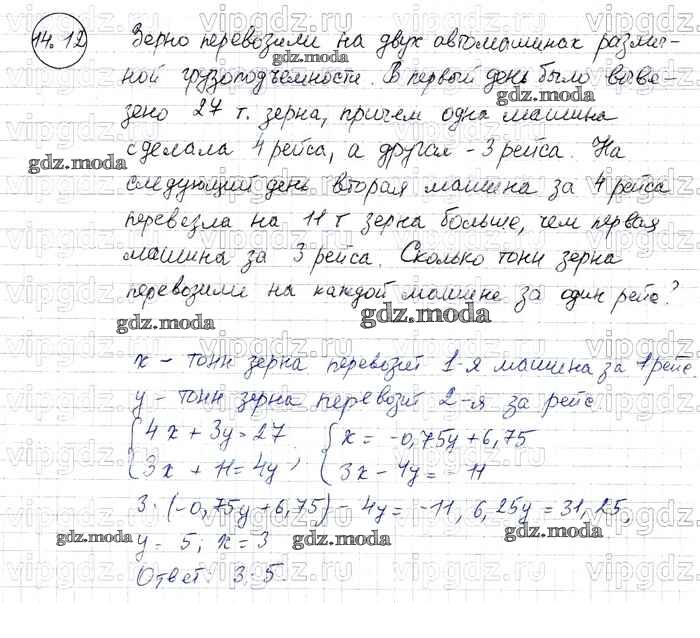 14.12 Зерно перевозили на двух автомашинах различ-
ной грузоподъемности. В первый день было выве-
зено 27 т. зерна, причем одна машина
сделала 4 рейса, а другая - 3 рейса. На
следующий день вторая машина за 4 рейса
перевезла на 11 т зерна больше, чем первая
машина за 3 рейса. Сколько тонн зерна
перевозили на каждой машине за один рейс?
x - тонн зерна перевозит 1-я машина за 1 рейс.
y - тонн зерна перевозит 2-я за рейс.
{4x + 3y = 27 {x = -0,75y + 6,75
{3x + 11 = 4y ; {3x - 4y = -11
3·(-0,75y + 6,75) - 4y = -11, 6,25y = 31,25,
y = 5; x = 3
Ответ: 3; 5.
gdz.moda
gdz.moda
gdz.moda
gdz.moda
gdz.moda
gdz.moda
gdz.moda
gdz.moda
gdz.moda
vipgdz.ru